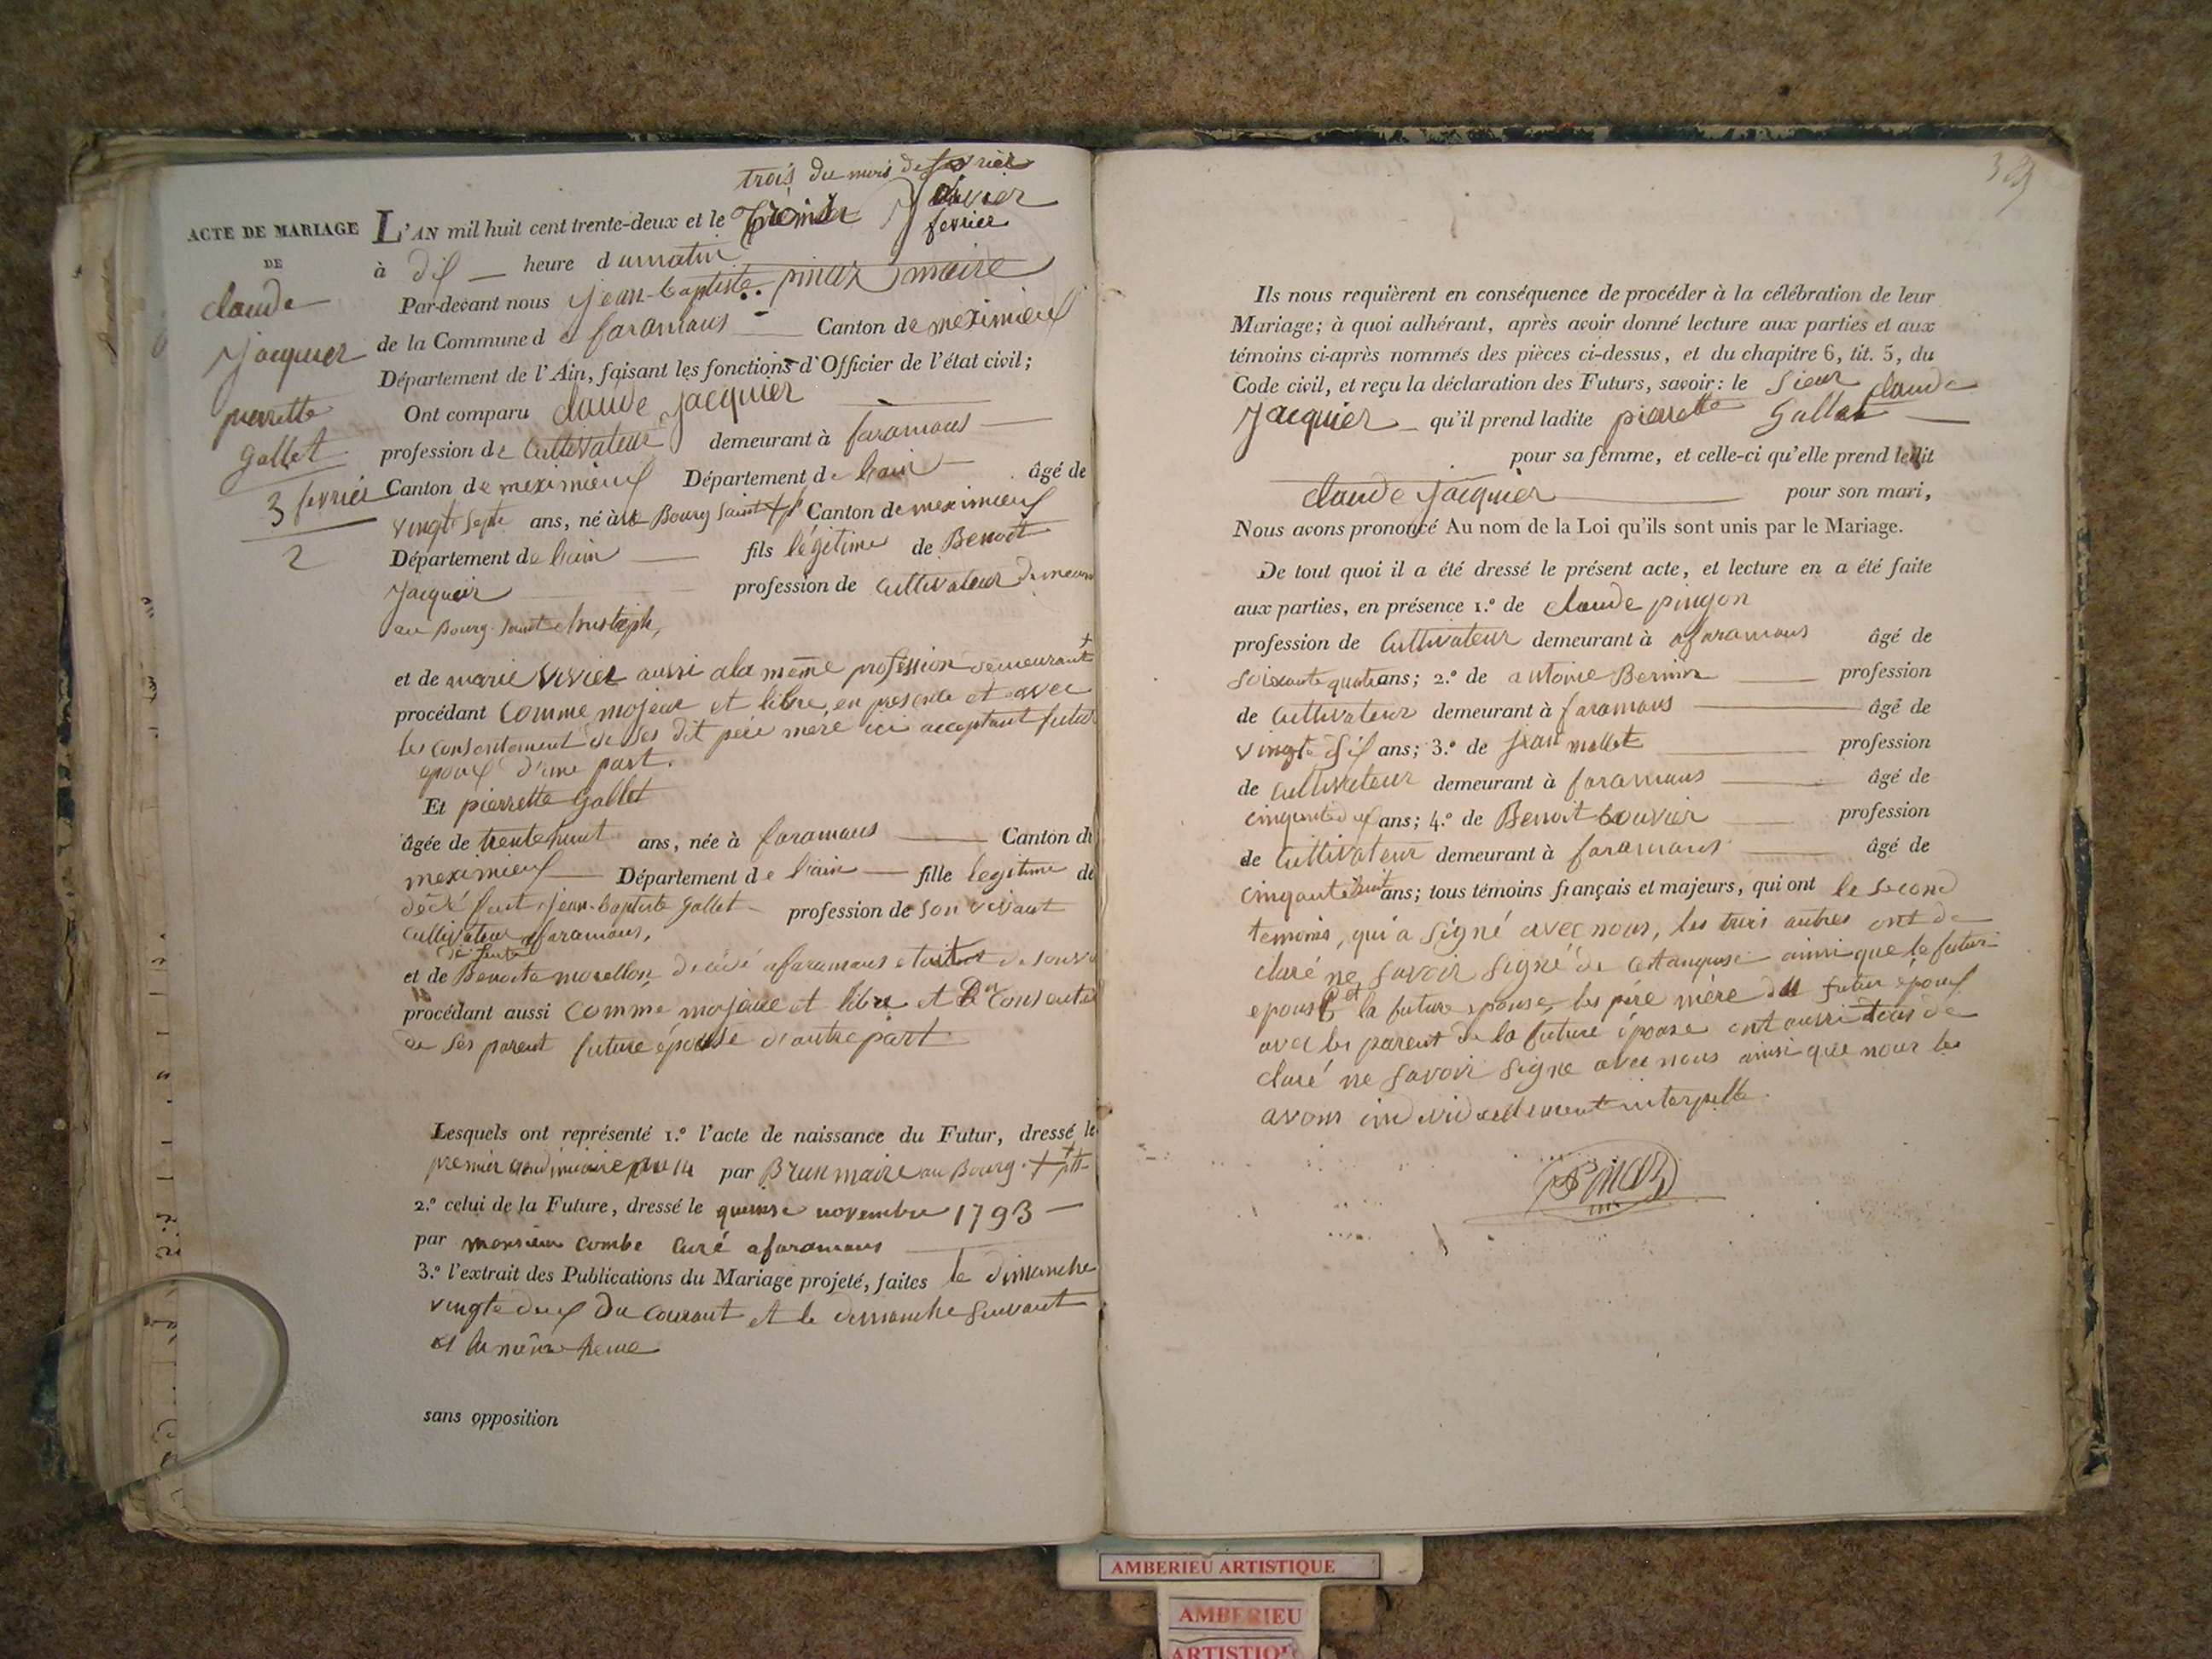 trois du mois de fevrier
ACTE DE MARIAGE
DE
claude
Jacquier
pierrette
Gallet
3 fevrier
2
L'AN mil huit cent trente-deux et le
fevrier
à dix heure du matin
Par-devant nous Jean-baptiste pinaz maire
de la Commune de faramans Canton de meximieux
Département de l'Ain, faisant les fonctions d'Officier de l'état civil;
Ont comparu claude Jacquier
profession de Cultivateur demeurant à faramans
Canton de meximieux Département de lain âgé de
vingt sept ans, né à Bourg Saint Canton de meximieux
Département de lain fils légitime de Benoit
Jacquier profession de cultivateur
au Bourg Saint christoph,
et de marie vivier aussi a la même profession demeurant
procédant comme majeur et libre, en presence et avec
les consentement de ses dit père mère ici acceptant futur
epoux d'une part.
Et pierrette Gallet
âgée de trente huit ans, née à faramans Canton de
meximieux Département de lain fille legitime de
jean-baptiste Gallet profession de son vivant
cultivateur a faramans,
de feute
et de Benoite morellon decédé a faramans
procédant aussi comme majeure et libre et
de ses parent future épouse d'autre part
Lesquels ont représenté 1.º l'acte de naissance du Futur, dressé le
premier par Brun maire au Bourg
2.º celui de la Future, dressé le quinse novembre 1793
par monsieur combe curé a faramans
3.º l'extrait des Publications du Mariage projeté, faites le dimanche
vingte deux du courant et le dimanche suivant
et la même heure
sans opposition
Ils nous requièrent en conséquence de procéder à la célébration de leur
Mariage; à quoi adhérant, après avoir donné lecture aux parties et aux
témoins ci-après nommés des pièces ci-dessus, et du chapitre 6, tit. 5, du
Code civil, et reçu la déclaration des Futurs, savoir: le Sieur claude
Jacquier qu'il prend ladite pierrette Gallet
pour sa femme, et celle-ci qu'elle prend ledit
claude jacquier pour son mari,
Nous avons prononcé Au nom de la Loi qu'ils sont unis par le Mariage.
De tout quoi il a été dressé le présent acte, et lecture en a été faite
aux parties, en présence 1.º de claude pingon
profession de Cultivateur demeurant à afaramans âgé de
soixante quatre ans; 2.º de antoine Bernin profession
de Cultivateur demeurant à faramans âgé de
vingte six ans; 3.º de jean mollet profession
de cultivateur demeurant à faramans âgé de
ans; 4.º de Benoit bouvier profession
de Cultivateur demeurant à faramans âgé de
cinquante huit ans; tous témoins français et majeurs, qui ont le second
temoins, qui a signé avec nous, les trois autres ont de
claré ne savoir signé de ainsi que le futur
epoux et la future epouse, les père mère du futur époux
avec les parent de la future épouse ont aussi tous de
claré ne savoir signe avec nous ainsi que nous les
avons individuellement interpellé.
Pinaz
AMBERIEU ARTISTIQUE
AMBERIEU